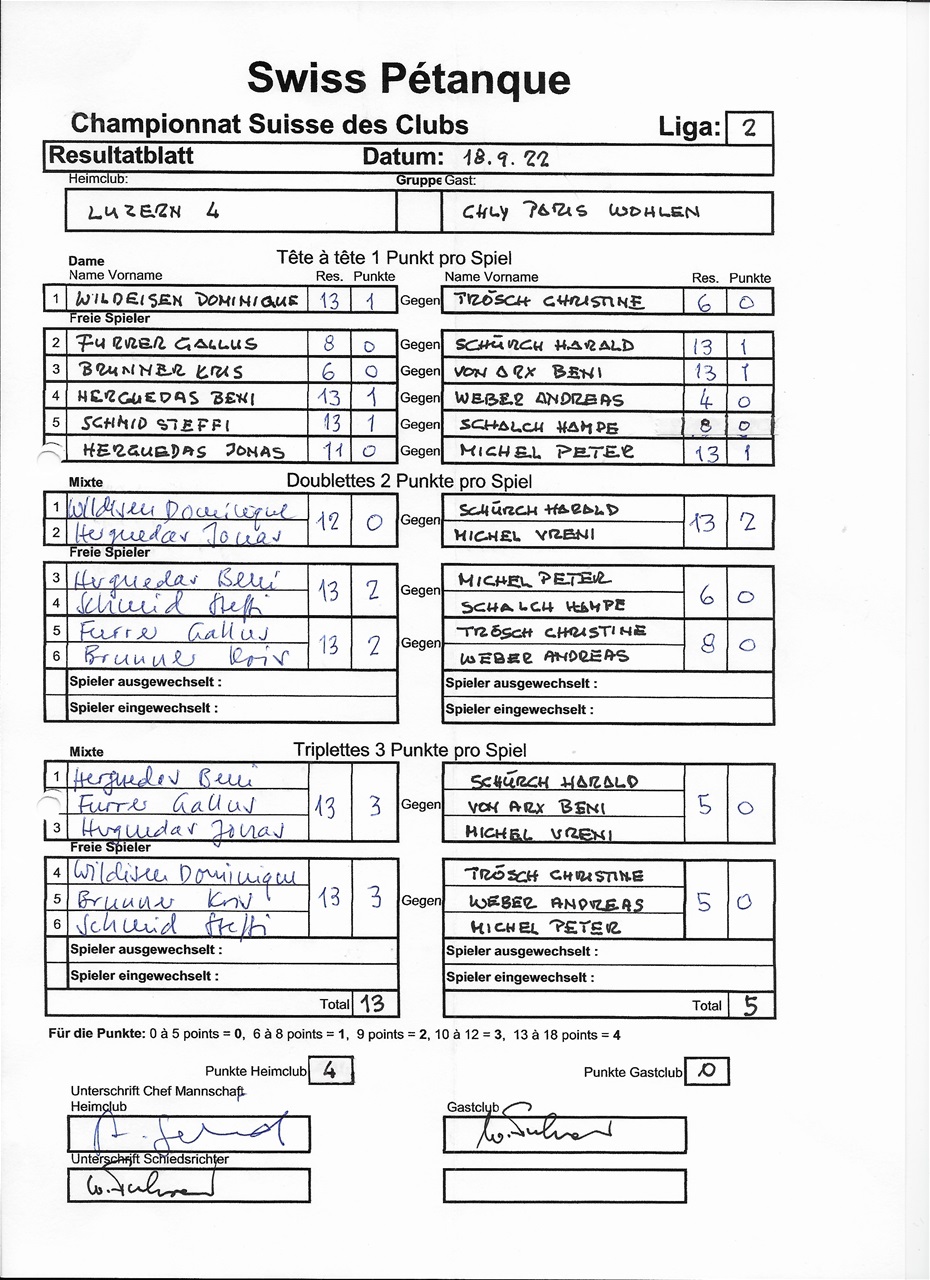 Swiss Pétanque
Championnat Suisse des Clubs Liga: 2
Resultatblatt Datum: 18.9.22
Heimclub: Gruppe Gast:
LUZERN 4 CHLY PARIS WOHLEN
Dame Tête à tête 1 Punkt pro Spiel
Name Vorname Res. Punkte Name Vorname Res. Punkte
1 WILDEISEN DOMINIQUE 13 1 Gegen TRÖSCH CHRISTINE 6 0
Freie Spieler
2 FURRER GALLUS 8 0 Gegen SCHÜRCH HARALD 13 1
3 BRUNNER KRIS 6 0 Gegen VON ARX BENI 13 1
4 HERGUEDAS BENI 13 1 Gegen WEBER ANDREAS 4 0
5 SCHMID STEFFI 13 1 Gegen SCHALCH HAMPE 8 0
HERGUEDAS JONAS 11 0 Gegen MICHEL PETER 13 1
Mixte Doublettes 2 Punkte pro Spiel
1 Wildisen Dominique 12 0 Gegen SCHÜRCH HARALD 13 2
2 Herguedas Jonas MICHEL VRENI
Freie Spieler
3 Herguedas Beni 13 2 Gegen MICHEL PETER 6 0
4 Schmid Steffi SCHALCH HAMPE
5 Furrer Gallus 13 2 Gegen TRÖSCH CHRISTINE 8 0
6 Brunner Kris WEBER ANDREAS
Spieler ausgewechselt : Spieler ausgewechselt :
Spieler eingewechselt : Spieler eingewechselt :
Mixte Triplettes 3 Punkte pro Spiel
1 Herguedas Beni SCHÜRCH HARALD
Furrer Gallus 13 3 Gegen VON ARX BENI 5 0
3 Herguedas Jonas MICHEL VRENI
Freie Spieler
4 Wildisen Dominique TRÖSCH CHRISTINE
5 Brunner Kris 13 3 Gegen WEBER ANDREAS 5 0
6 Schmid Steffi MICHEL PETER
Spieler ausgewechselt : Spieler ausgewechselt :
Spieler eingewechselt : Spieler eingewechselt :
Total 13 Total 5
Für die Punkte: 0 à 5 points = 0, 6 à 8 points = 1, 9 points = 2, 10 à 12 = 3, 13 à 18 points = 4
Punkte Heimclub 4 Punkte Gastclub 0
Unterschrift Chef Mannschaft
Heimclub Gastclub
Unterschrift Schiedsrichter